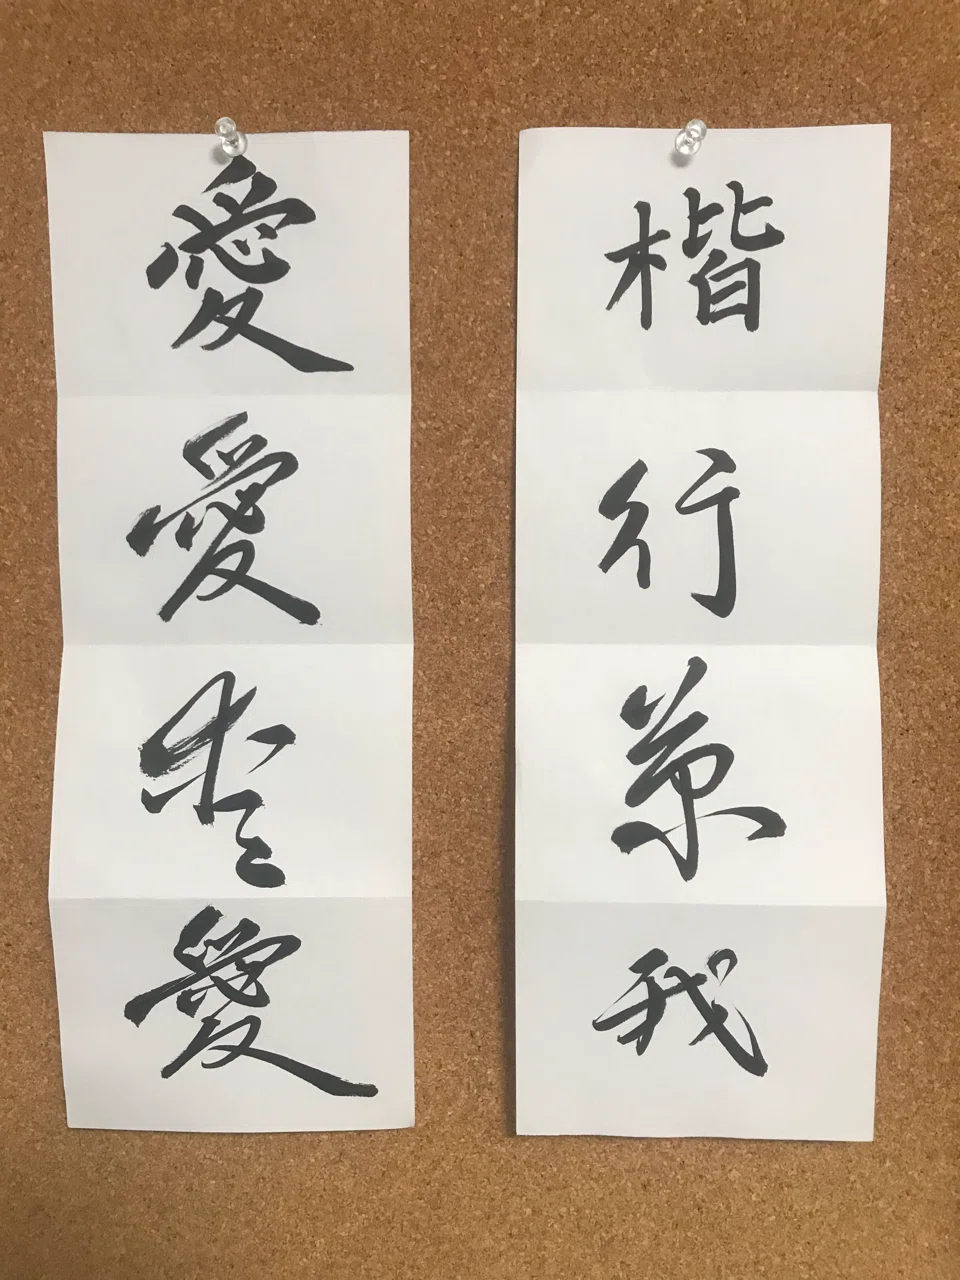 楷行草我
愛愛愛愛